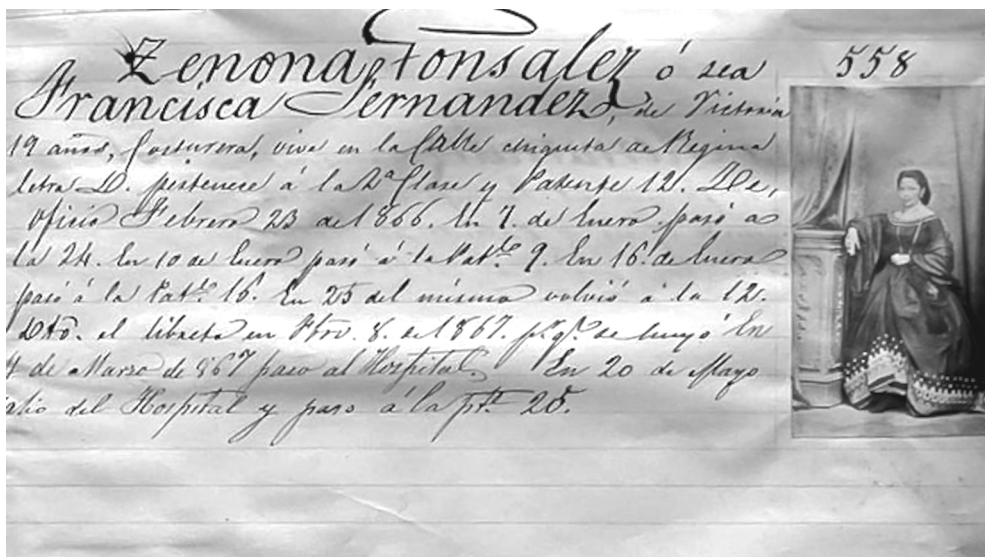 Zenona Gonsalez ó sea 558
Francisca Fernandez, de Victoria
19 años, Costurera, vive en la Calle chiquita de Regina
letra D. pertenece á la 2ª Clase y Patente 12. De,
oficio Febrero 23 de 1866. En 7. de Enero pasó a
la 24. En 10 de Enero pasó á la Pat.te 9. En 16. de Enero
pasó á la Pat.te 16. En 25 del mismo volvió á la 12.
el libreto en 8. de 1867. p.r q.e se huyó En
4 de Marzo de 867 paso al Hospital. En 20 de Mayo
salio del Hospital y paso á la pte 25.